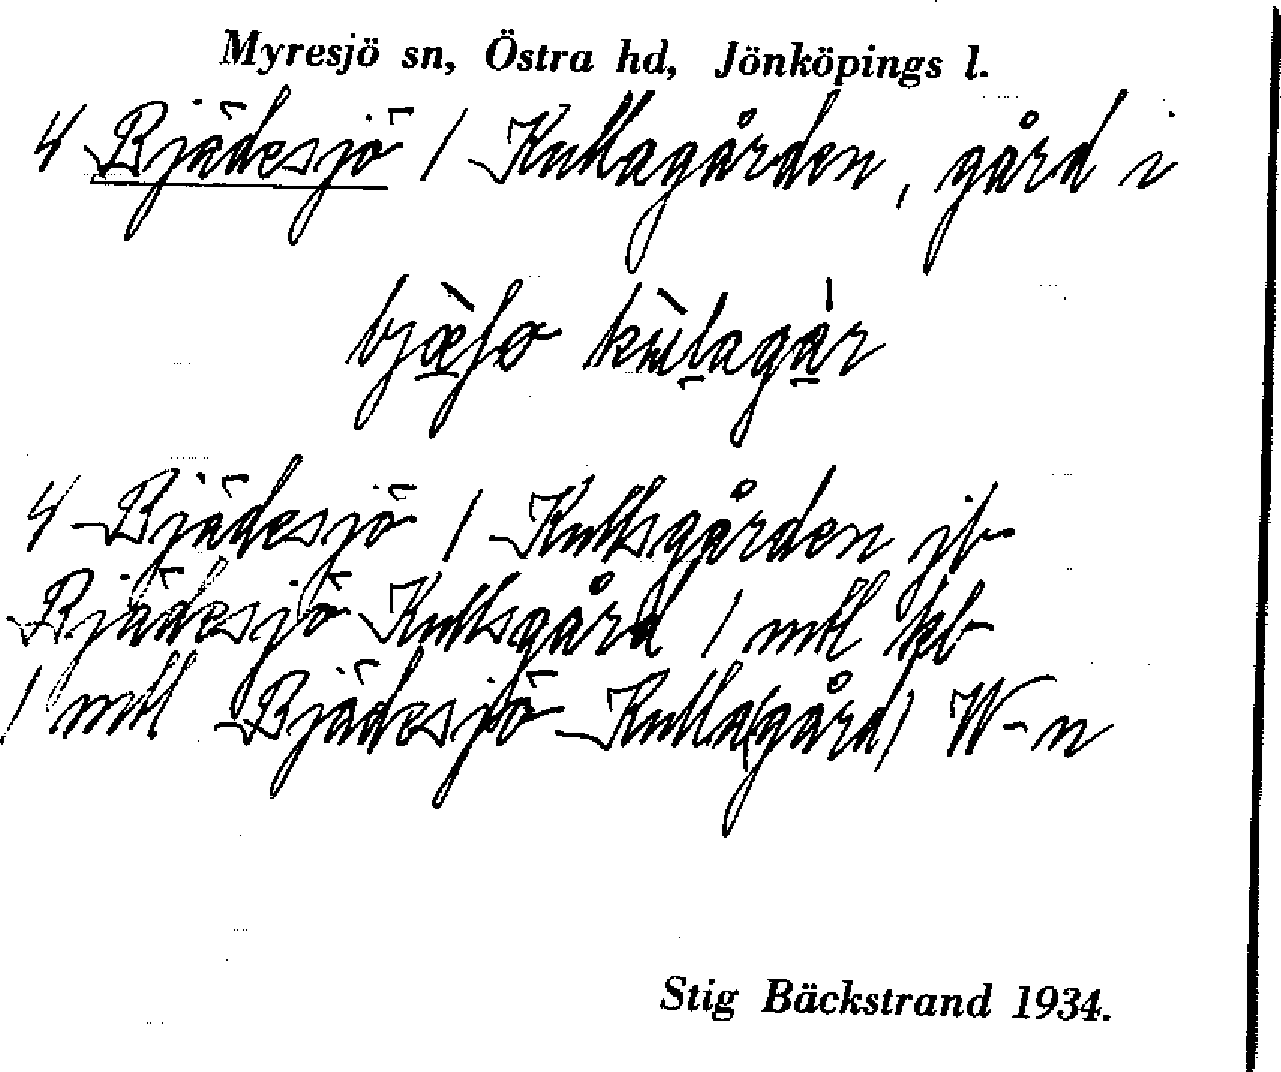 Myresjö sn, Östra hd, Jönköpings l.
4 Bjädesjö / Kullagården, gård i
bjæ̀ʃo kùlagàr
4 Bjädesjö / Kullsgården jb
Bjädesjö Kullsgård 1 mtl kb
1 mtl Bjädesjö Kulla(gård) W-n
Stig Bäckstrand 1934.